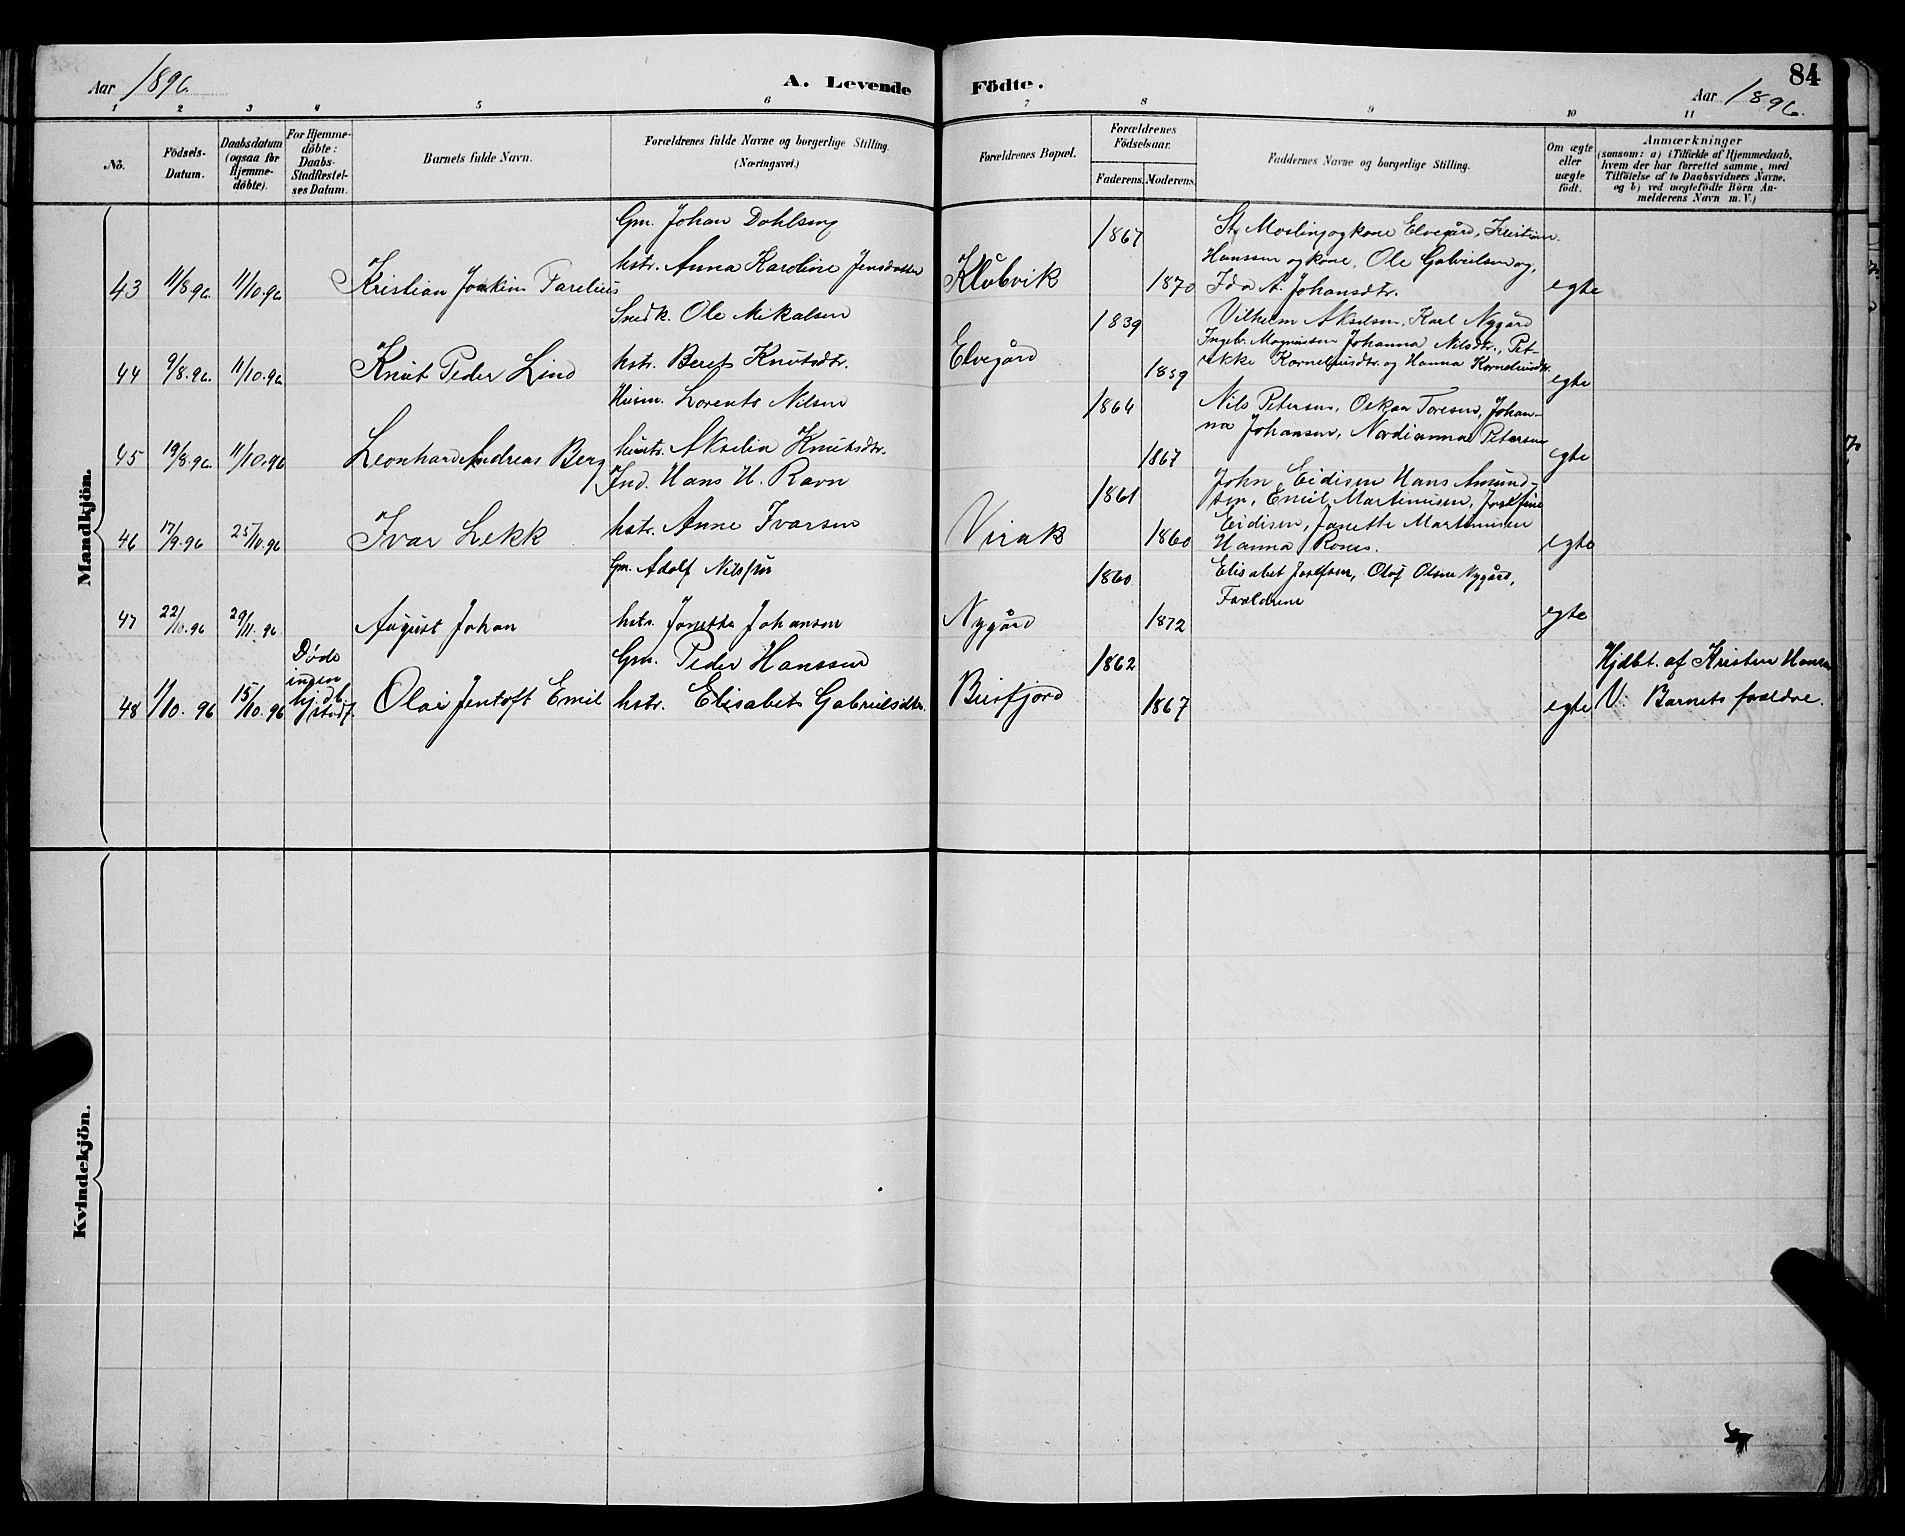 Aar 1896. A. Levende Födte. Aar 1896. 84
1 2 3 4 5 6 7 8 9 10 11
Nö.
Födsels-Datum.
Daabsdatum (ogsaa for Hjemme-döbte).
For Hjemme-döbte: Daabs-Stadfæstel-ses Datum.
Barnets fulde Navn.
Forældrenes fulde Navne og borgerlige Stilling.
(Næringsvei.)
Forældrenes Bopæl.
Forældrenes Födselsaar.
Faderens. Moderens.
Faddernes Navne og borgerlige Stilling.
Om ægte eller uægte födt.
Anmærkninger
(saasom: a) i Tilfælde af Hjemmedaab,
hvem der har forrettet samme, med
Tilföielse af to Daabsvidners Navne.
og b) ved uægtefödte Börn An-
melderens Navn m. V.)
Mandkjön.
Gm. Johan Dahlseng 1867 Moslingogkone Elvegård, Kristian
43 11/8 96. 11/10.96 Kristian Joakim Parelius hstr. Anna Karoline Jensdatter Klubvik 1870 Hanssen og kone, Ole Gabrielsen og,
Ida A. Johansdtr. egte
Snedk. Ole Mikalsen 1839 Vilhelm Akselsen, Karl Nygård
Ingeb. Magnussen Johanna Nilsdtr., Pet-
44 9/8.96. 11/10.96 Knut Peder Lind hstr. Beret Knutsdtr. Elvegård 1859 rikke Korneliusdtr. og Hanna Korneliusdtr. egte
Husm. Lorents Nilsen 1864 Nils Petersen, Oskar Toresen, Johan-
45 19/8.96. 11/10.96 Leonhard Andreas Berg hustr. Akselia Knutsdtr. 1867 na Johansen, Nordianna Petersen egte
Ind. Hans H. Ravn 1861 John Eidisen Hans Amund-
sen, Emil Martinusen, Josefine
46 17/9.96 25/10.96 Ivar Lekk hstr. Anne Ivarsen Virak 1860 Eidisen, Janette Martinusen
Hanna egte
Gm. Adolf Nilsen 1860 Elisabet Josefsen, Olof Olsen Nygård,
Forældrene
47 22/10.96 29/11.96 August Johan hstr. Janetta Johansen Nygård 1872 egte
Døde
ingen
hjdb.
stadf.
Gm. Peder Hanssen 1862 Hjdbt. af Kristen Hansen
48 1/10.96 15/10.96 Olai Jentoft Emil hstr. Elisabet Gabrielsdtr. Beisfjord 1867 egte V: Barnets forældre.
Kvindekjön.